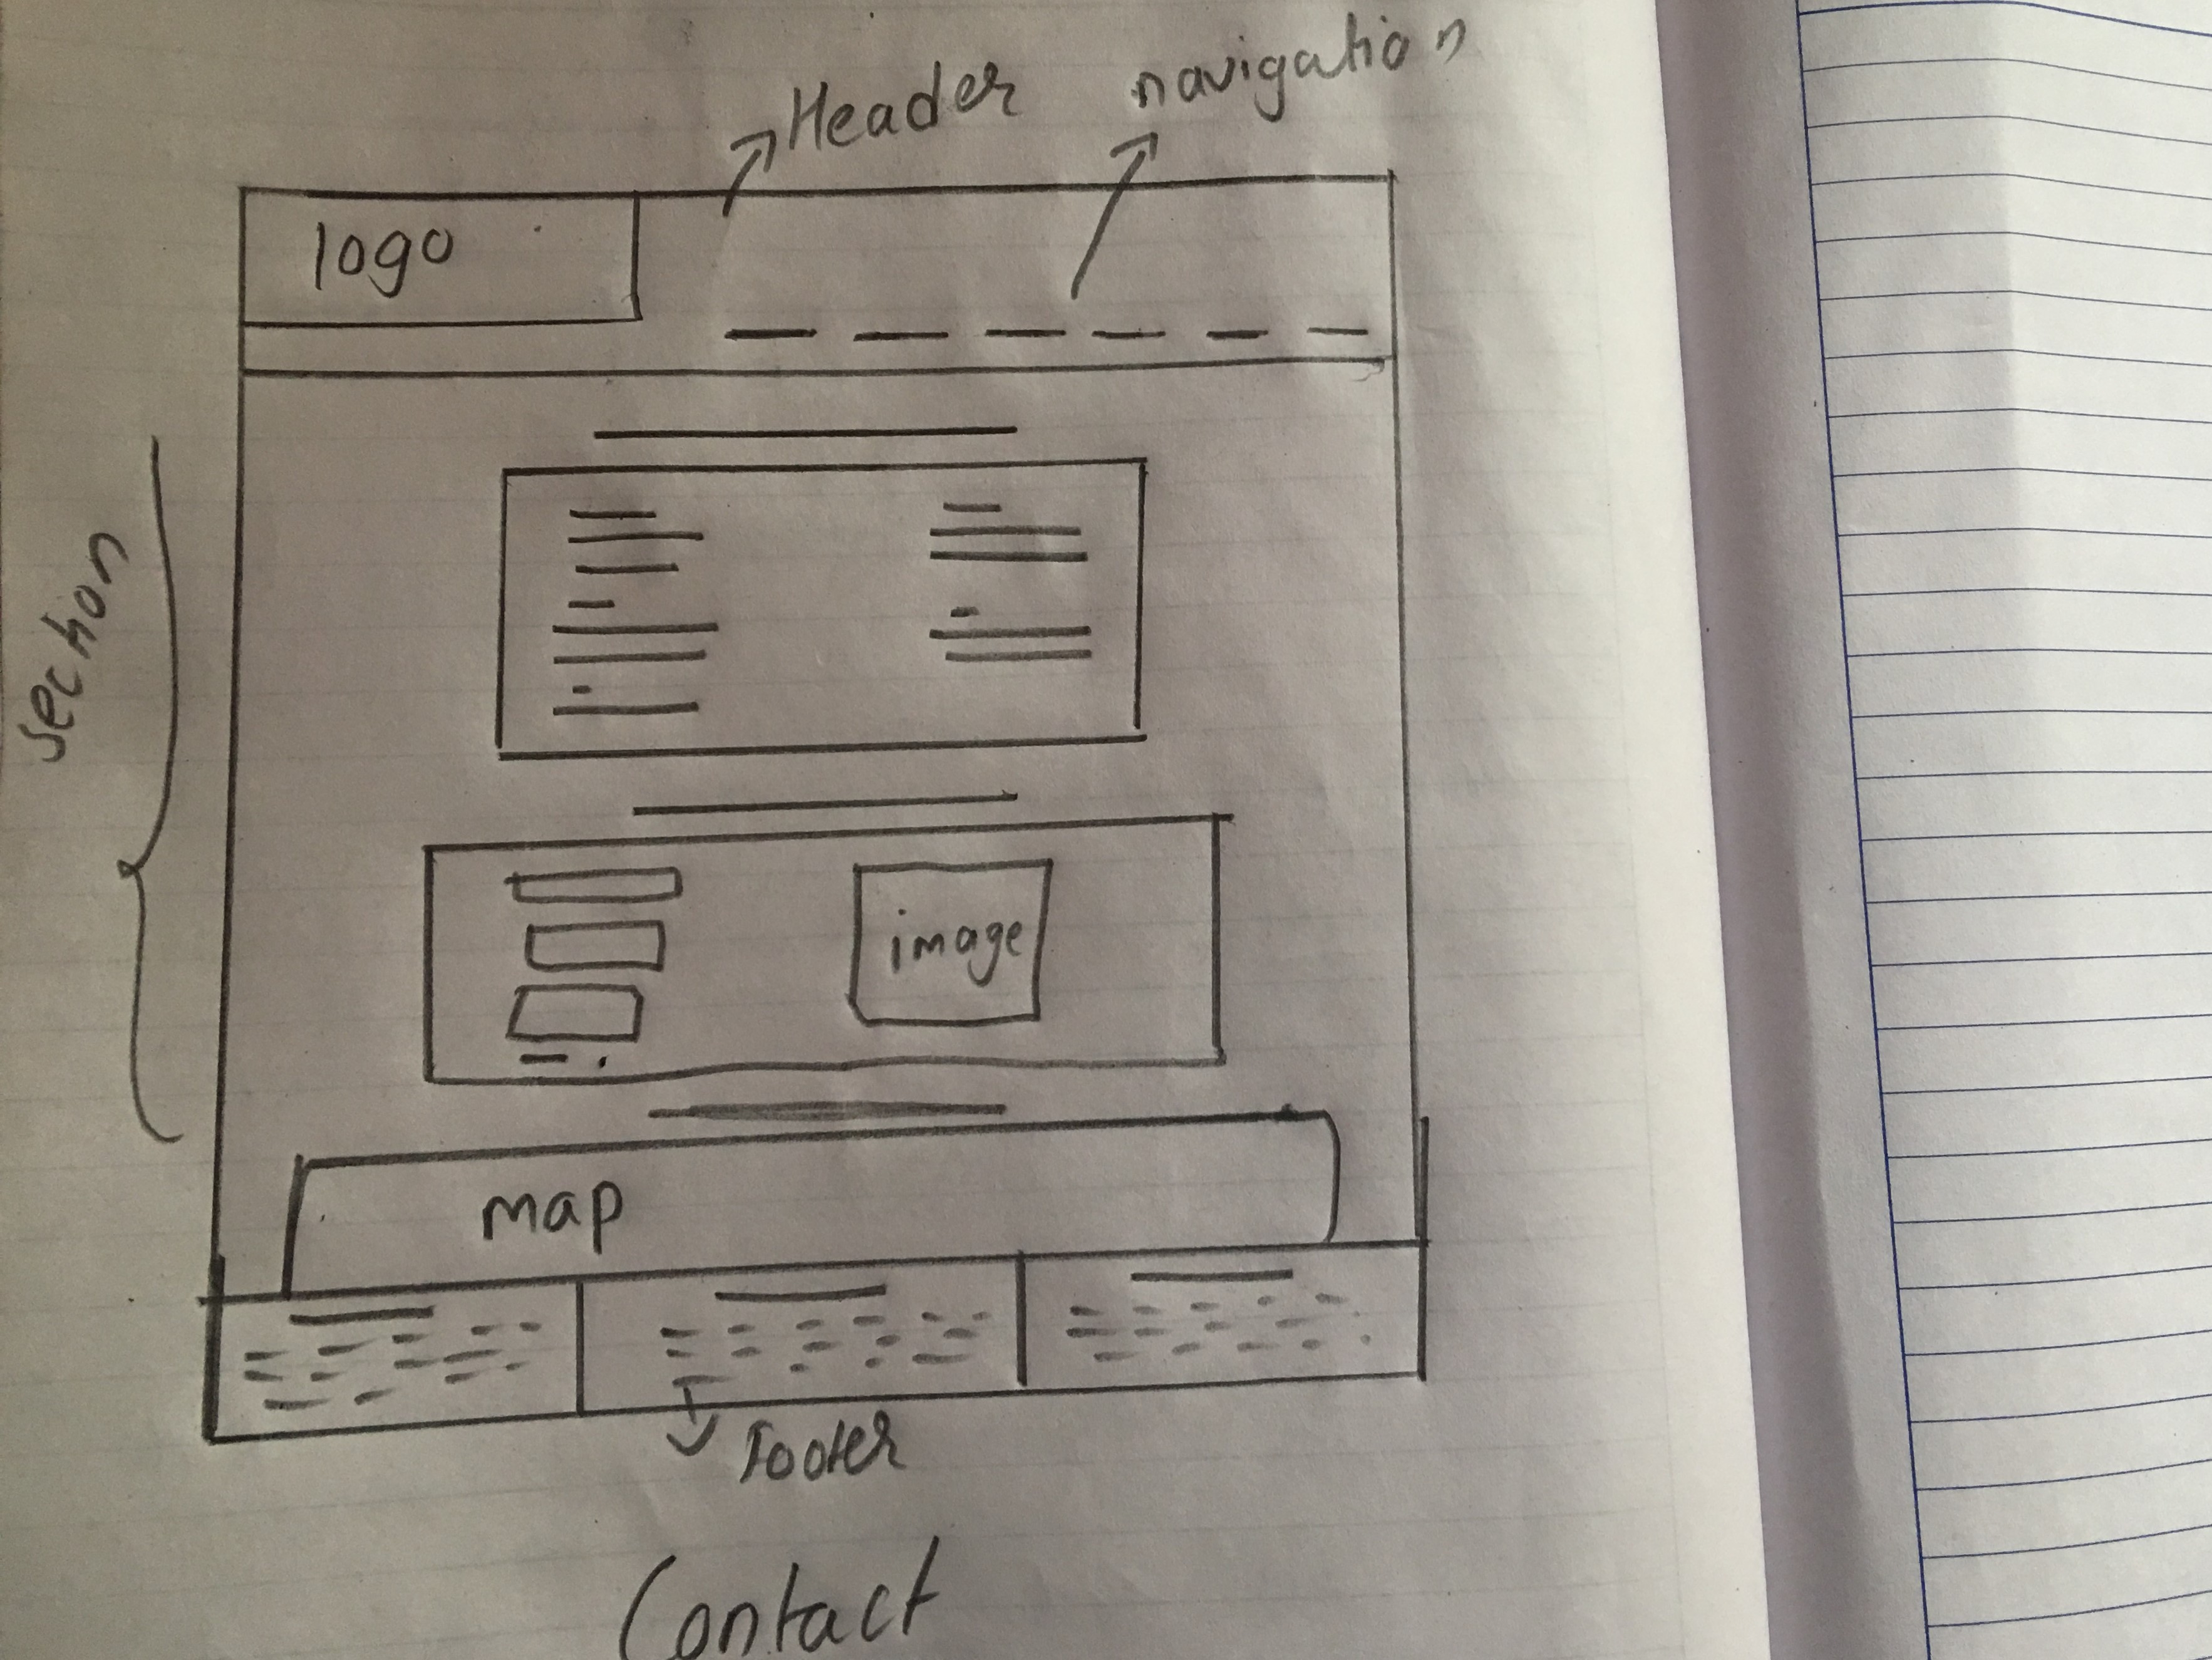 Header navigation
logo
section
image
map
Footer
Contact